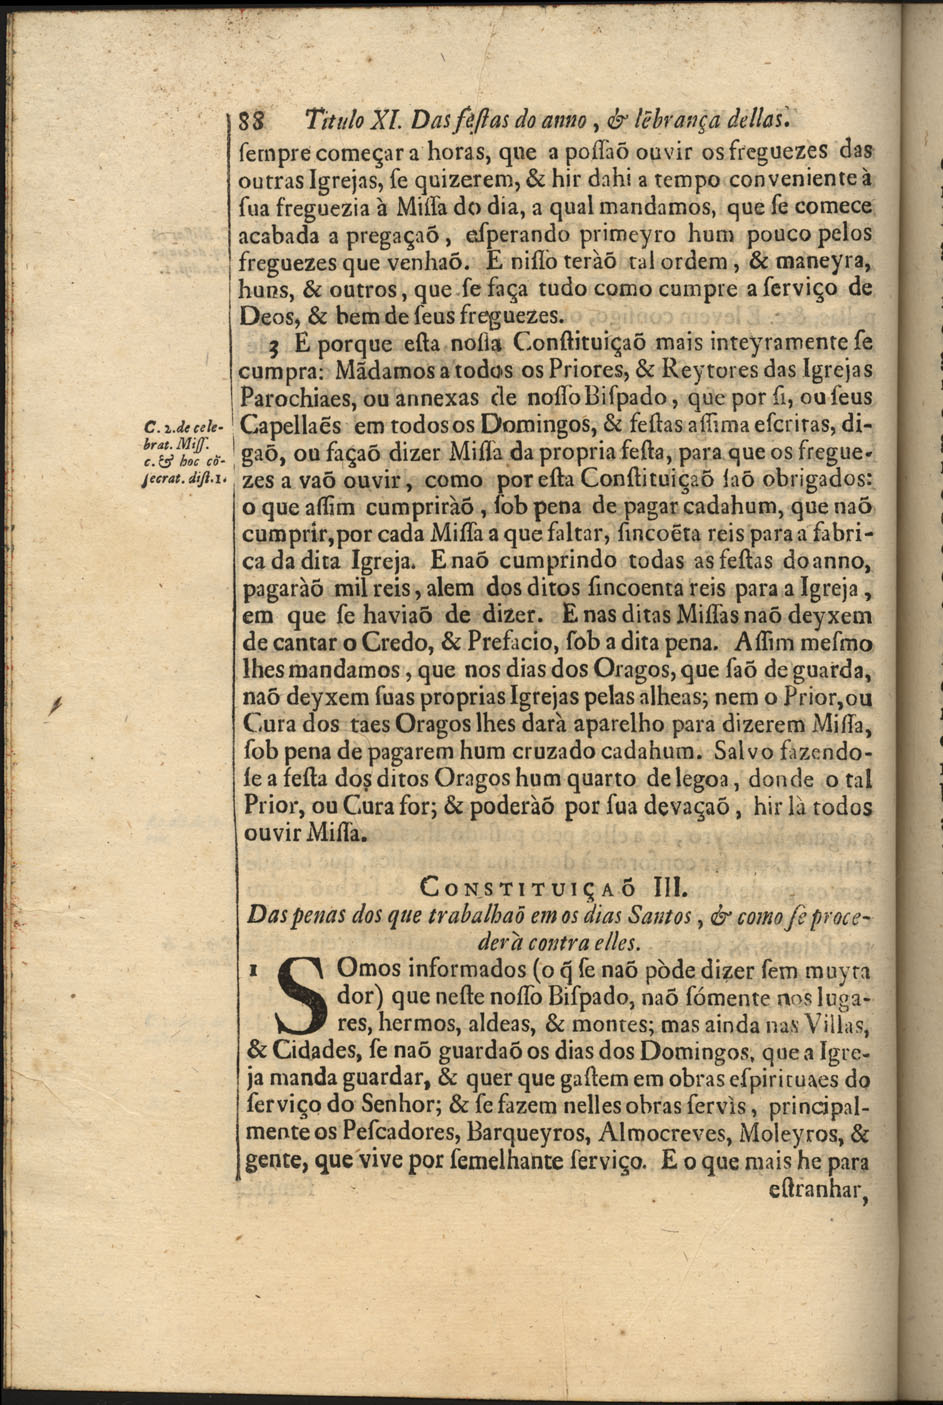 88 Titulo XI. Das feſtas do anno, & lẽbrança dellas.
ſempre começar a horas, que a poſſaõ ouvir os freguezes das
outras Igrejas, ſe quizerem, & hir dahi a tempo conveniente à
ſua freguezia à Miſſa do dia, a qual mandamos, que ſe comece
acabada a pregaçaõ, eſperando primeyro hum pouco pelos
freguezes que venhaõ. E niſſo teràõ tal ordem, & maneyra,
huns, & outros, que ſe faça tudo como cumpre a ſerviço de
Deos, & bem de ſeus freguezes.
3 E porque eſta noſſa Conſtituiçaõ mais inteyramente ſe
cumpra: Mãdamos a todos os Priores, & Reytores das Igrejas
Parochiaes, ou annexas de noſſo Biſpado, que por ſi, ou ſeus
Capellaẽs em todos os Domingos, & feſtas aſſima eſcritas, di-
gaõ, ou façaõ dizer Miſſa da propria feſta, para que os fregue-
zes a vaõ ouvir, como por eſta Conſtituiçaõ ſaõ obrigados:
o que aſſim cumpriràõ, ſob pena de pagar cadahum, que naõ
cumprir, por cada Miſſa a que faltar, ſincoẽta reis para a fabri-
ca da dita Igreja. E naõ cumprindo todas as feſtas do anno,
pagaràõ mil reis, alem dos ditos ſincoenta reis para a Igreja,
em que ſe haviaõ de dizer. E nas ditas Miſſas naõ deyxem
de cantar o Credo, & Prefacio, ſob a dita pena. Aſſim meſmo
lhes mandamos, que nos dias dos Oragos, que ſaõ de guarda,
naõ deyxem ſuas proprias Igrejas pelas alheas; nem o Prior, ou
Cura dos taes Oragos lhes darà aparelho para dizerem Miſſa,
ſob pena de pagarem hum cruzado cadahum. Salvo fazendo-
ſe a feſta dos ditos Oragos hum quarto de legoa, donde o tal
Prior, ou Cura for; & poderàõ por ſua devaçaõ, hir là todos
ouvir Miſſa.
C. 2. de cele-
brat. Miſſ.
c. & hoc cõ-
ſecrat. diſt. 1.
CONSTITUIÇAÕ III.
Das penas dos que trabalhaõ em os dias Santos, & como ſe proce-
derà contra elles.
1 SOmos informados (o q̃ ſe naõ pòde dizer ſem muyta
dor) que neſte noſſo Biſpado, naõ ſómente nos luga-
res, hermos, aldeas, & montes; mas ainda nas Villas,
& Cidades, ſe naõ guardaõ os dias dos Domingos, que a Igre-
ja manda guardar, & quer que gaſtem em obras eſpirituaes do
ſerviço do Senhor; & ſe fazem nelles obras ſervìs, principal-
mente os Peſcadores, Barqueyros, Almocreves, Moleyros, &
gente, que vive por ſemelhante ſerviço. E o que mais he para
eſtranhar,